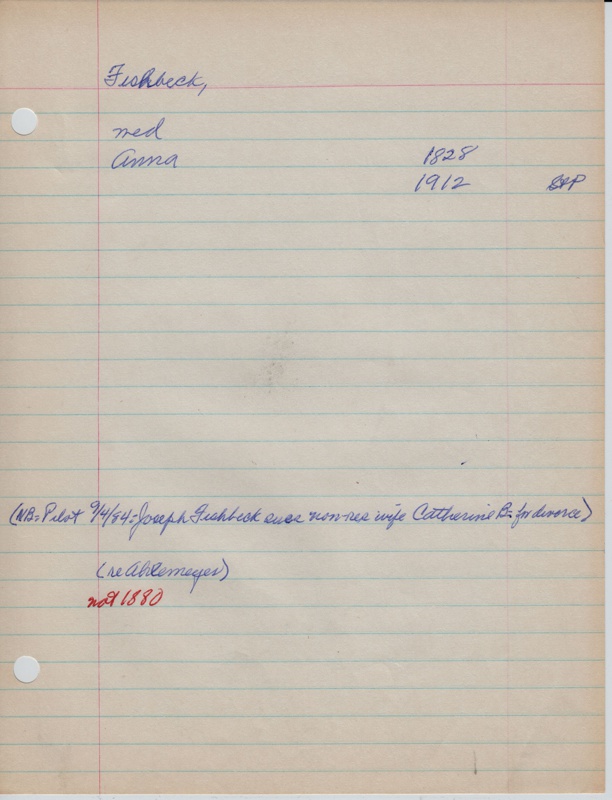 Fishbeck,
med
Anna 1828
1912 StP
(NB: Pilot 9/4/84: Joseph Fishbeck sues non-res wife Catherine B. for divorce)
(re Ahlemeyer)
not 1880